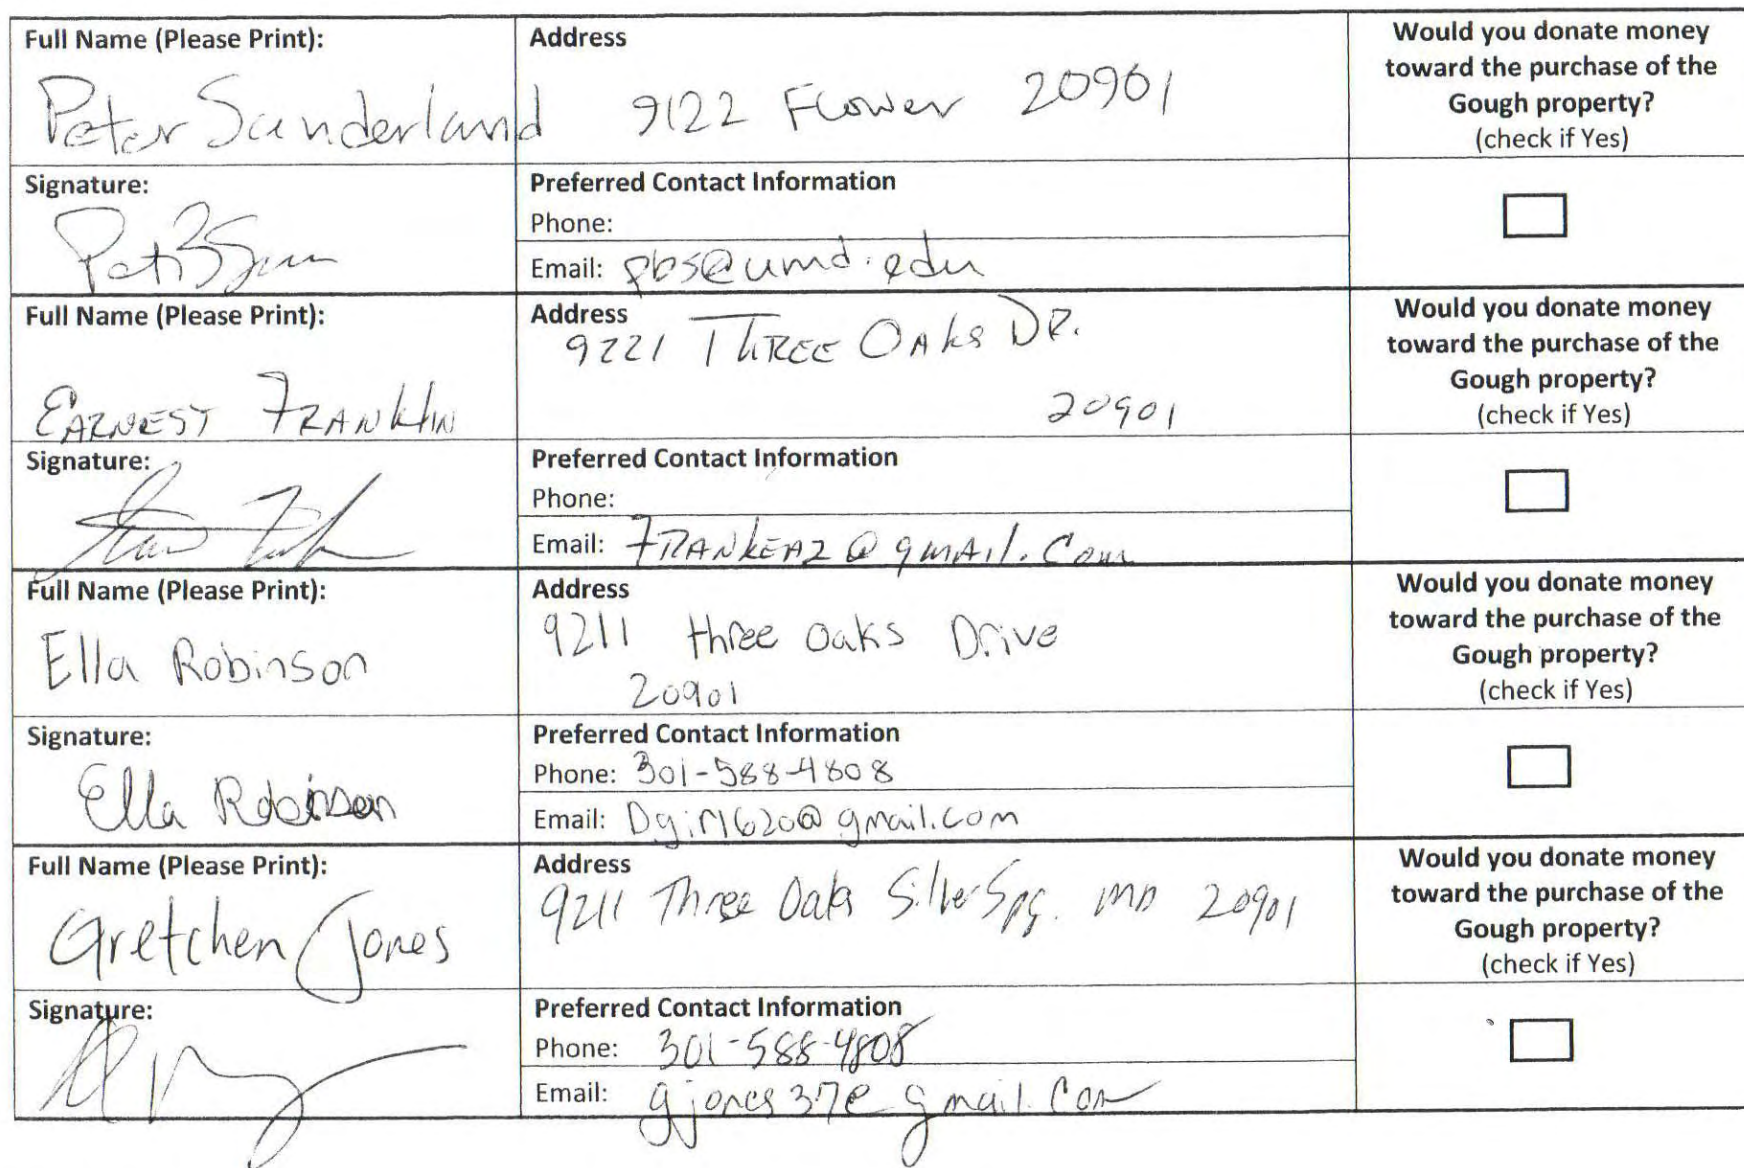 Full Name (Please Print):
Peter Sunderland
Address
9122 Flower 20901
Would you donate money
toward the purchase of the
Gough property?
(check if Yes)
Signature:
Preferred Contact Information
Phone:
Email: pbs@umd.edu
Full Name (Please Print):
EARNEST FRANKLIN
Address
9221 THREE OAKS DR.
20901
Would you donate money
toward the purchase of the
Gough property?
(check if Yes)
Signature:
Preferred Contact Information
Phone:
Email: FRANKEA2@gmAil.Com
Full Name (Please Print):
Ella Robinson
Address
9211 three oaks Drive
20901
Would you donate money
toward the purchase of the
Gough property?
(check if Yes)
Signature:
Ella Robinson
Preferred Contact Information
Phone: 301-588-4808
Email: Dgirl1620@gmail.com
Full Name (Please Print):
Gretchen Jones
Address
9211 Three Oaks Silver Spg. MD 20901
Would you donate money
toward the purchase of the
Gough property?
(check if Yes)
Signature:
Preferred Contact Information
Phone: 301-588-4808
Email: gjones37@gmail.com